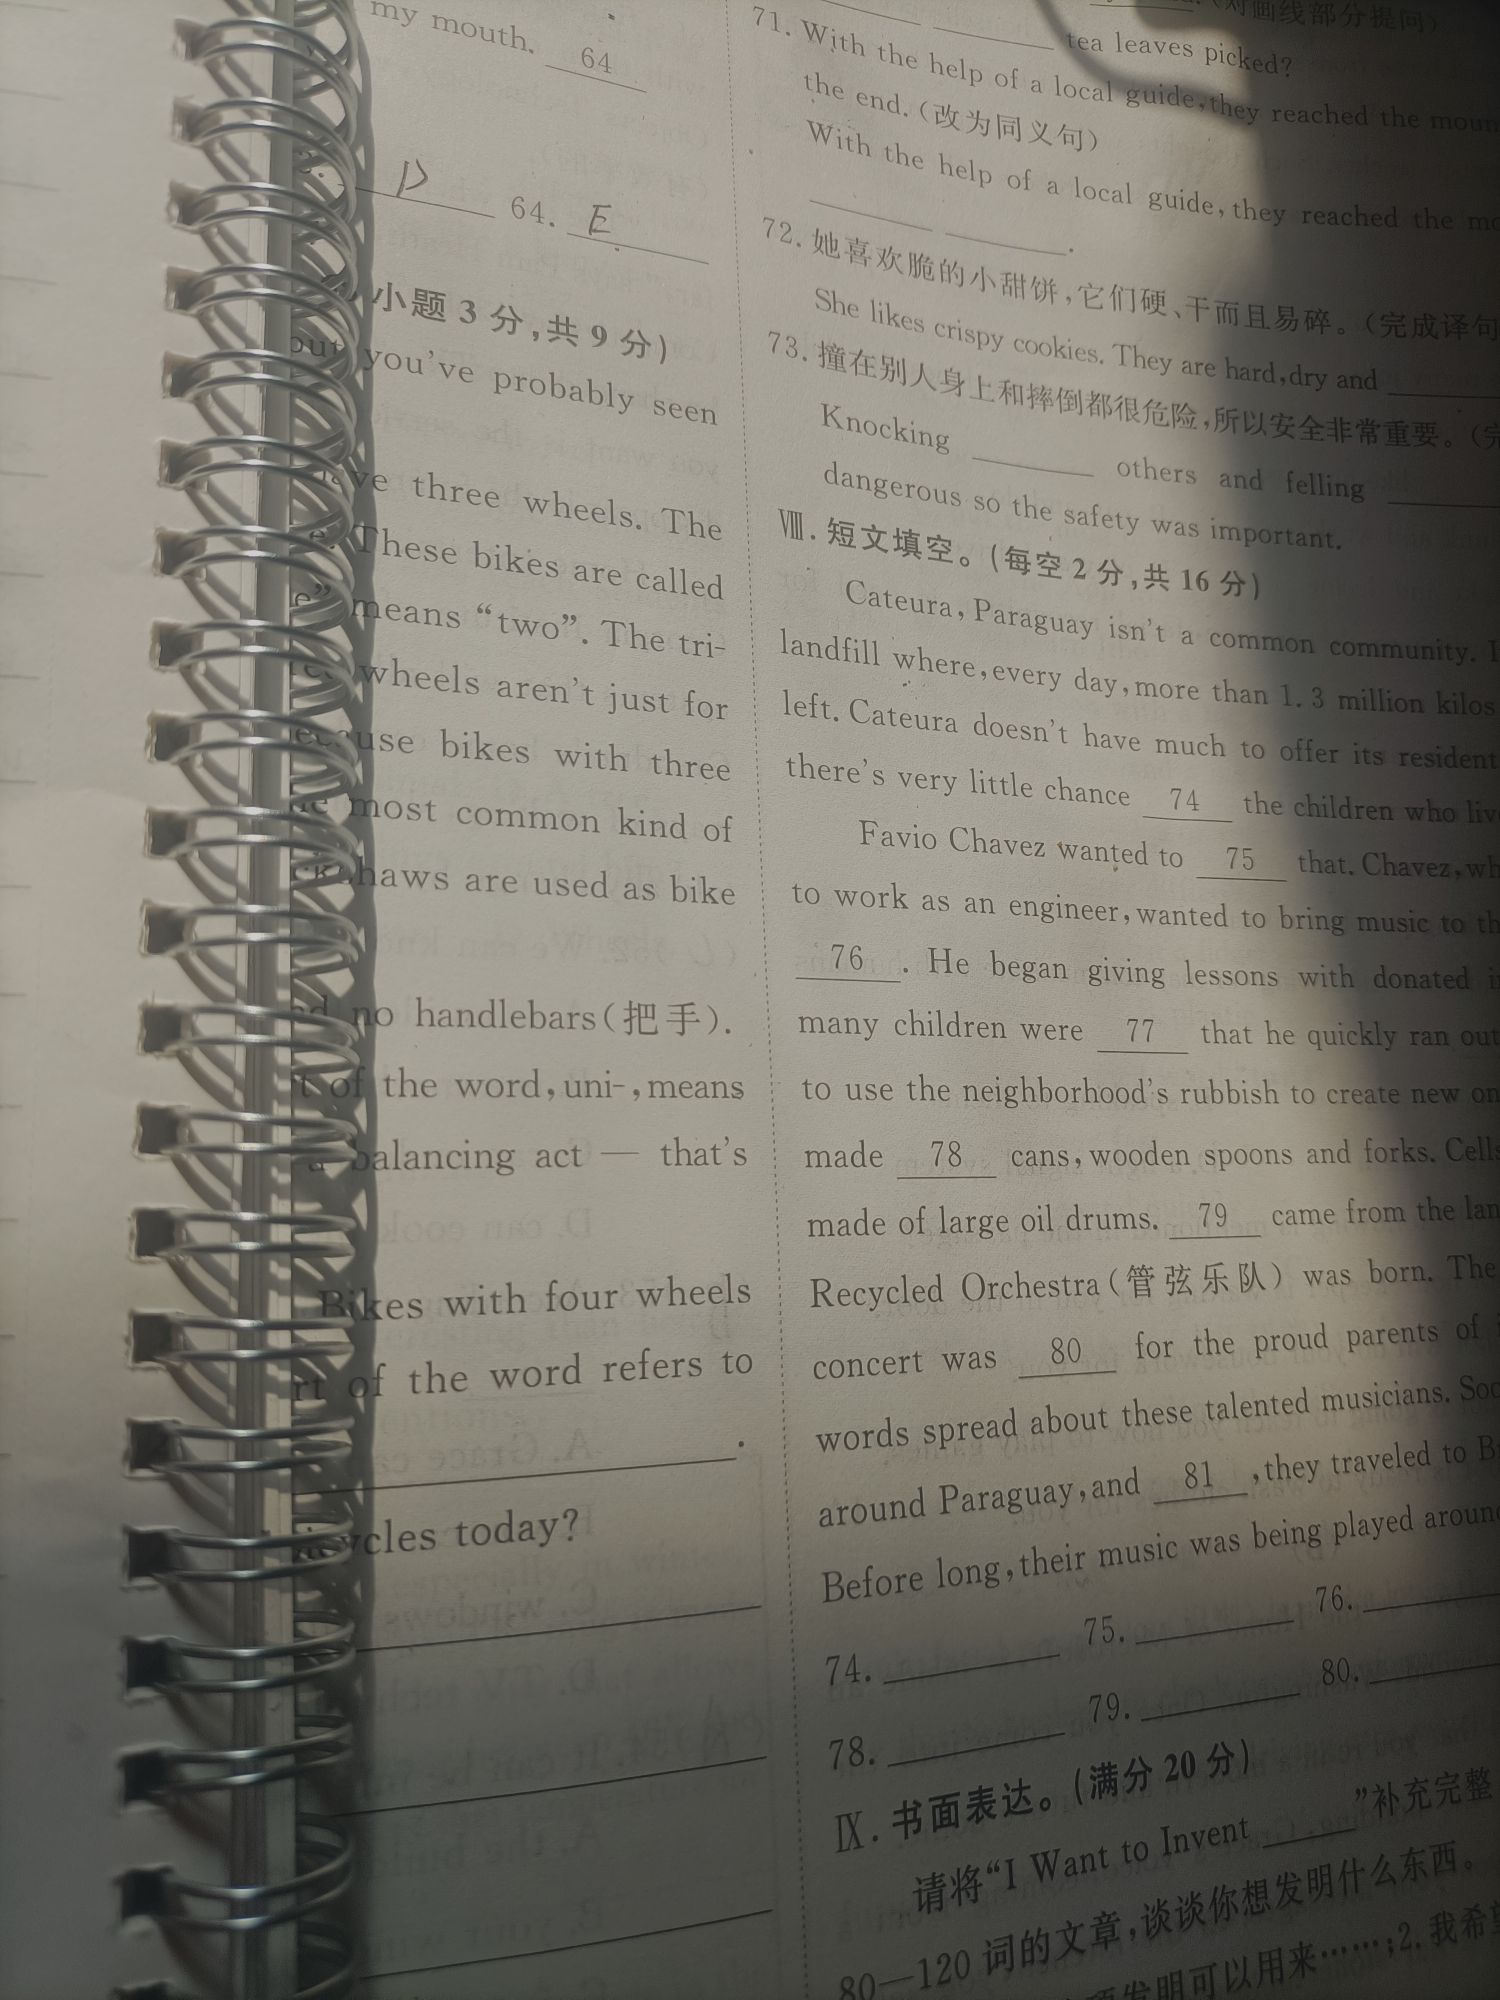 my mouth. 64
D 64. E
小题 3 分,共 9 分)
you've probably seen
three wheels. The
These bikes are called
means “two”. The tri-
wheels aren't just for
bikes with three
most common kind of
are used as bike
no handlebars(把手).
of the word,uni-,means
balancing act — that's
Bikes with four wheels
of the word refers to
.
today?
(对画线部分提问)
tea leaves picked?
71. With the help of a local guide,they reached the
the end.(改为同义句)
With the help of a local guide,they reached the
.
72. 她喜欢脆的小甜饼,它们硬、干而且易碎。(完成译句
She likes crispy cookies. They are hard,dry and
73. 撞在别人身上和摔倒都很危险,所以安全非常重要。(
Knocking others and felling
dangerous so the safety was important.
Ⅷ. 短文填空。(每空 2 分,共 16 分)
Cateura, Paraguay isn't a common community.
landfill where,every day,more than 1.3 million kilos
left. Cateura doesn't have much to offer its
there's very little chance 74 the children who
Favio Chavez wanted to 75 that. Chavez,
to work as an engineer,wanted to bring music to
76 . He began giving lessons with donated
many children were 77 that he quickly ran out
to use the neighborhood's rubbish to create new
made 78 cans,wooden spoons and forks.
made of large oil drums. 79 came from the
Recycled Orchestra(管弦乐队) was born. The
concert was 80 for the proud parents of
words spread about these talented musicians.
around Paraguay,and 81 ,they traveled to
Before long,their music was being played
74. 75. 76.
78. 79. 80.
Ⅸ. 书面表达。(满分 20 分)
请将“I Want to Invent ”补充完整
80—120 词的文章,谈谈你想发明什么东西。
发明可以用来……;2. 我希